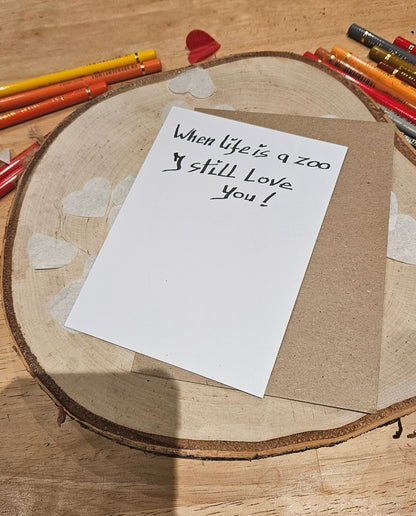 When life is a zoo
I still Love
You!